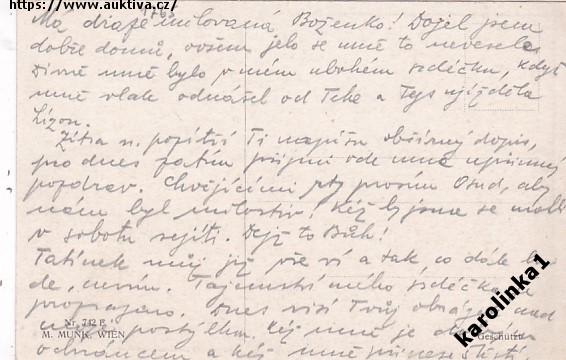 https://www.auktiva.cz/
Má draze milovaná Boženko! Dojel jsem
dobře domů, ovšem jelo se mně to neveselo
Divně mně bylo v mém ubohém srdéčku, když
mně vlak odnášel od Tebe a Tys ujížděla
Zítra n. pozítří Ti napíšu obšírný dopis,
pro dnes zatím přijmi ode mne upřímný
pozdrav. Chvějícími rty prosím Osud, aby
nám byl milostiv! Kéž by jsme se mohli
v sobotu sejíti. Dejž to Bůh!
Tatínek můj již vše ví a tak co dále bu
de, nevím. Tajemství mého srdéčka
prozrazeno. Dnes visí Tvůj obrázek nad
mojí postýlkou. Kéž mně je
ochráncem a kéž mně přinese štěstí
Nr. 742 F
M. MUNK, WIEN
Geschützt
karolinka1